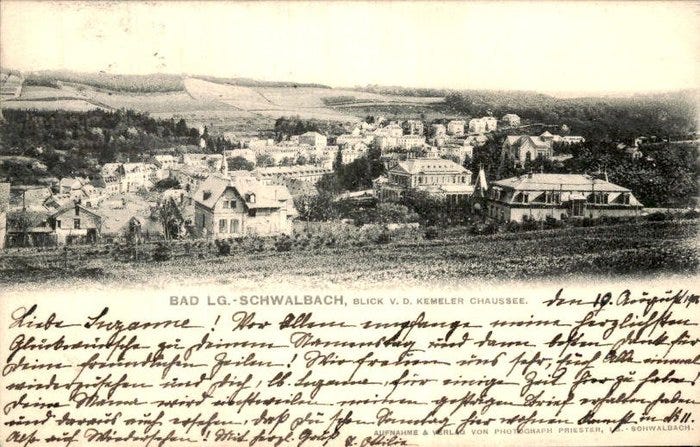 BAD LG.-SCHWALBACH, BLICK V. D. KEMELER CHAUSSEE.
den 19. August
Liebe Suzanne! Vor Allem empfange meine herzlichsten
Glückwünsche zu deinem Namenstag und dann besten Dank für
deine freundlichen Zeilen! Wir freuen uns sehr, Euch Alle einmal
wiederzusehen und Dich, lb. für einige Zeit hier zu haben,
deine Mama wird einstweilen meinen gestrigen Brief erhalten haben
und daraus auch ersehen, daß Du schon Samstag kannst
Also auf Wiedersehen! Mit herzl. Gruß
AUFNAHME & VERLAG VON PHOTOGRAPH PRIESTER, LG.-SCHWALBACH.